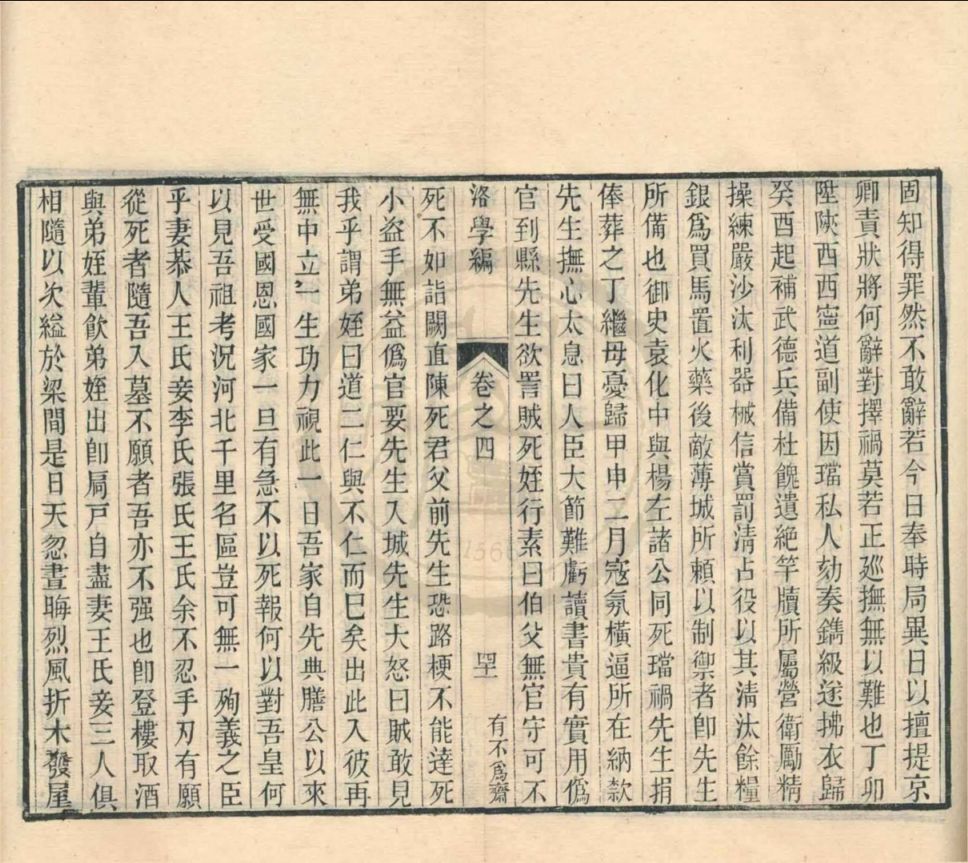 固知得罪然不敢辭若今日奉時局異日以擅提京
卿責狀將何辭對擇禍莫若正廵撫無以難也丁卯
陞陝西西寧道副使因璫私人劾奏鐫級遂拂衣歸
癸酉起補武德兵備杜餽遺絕竿牘所屬營衛勵精
操練嚴沙汰利器械信賞罰清占役以其清汰餘糧
銀爲買馬置火藥後敵薄城所賴以制禦者卽先生
所備也御史袁化中與楊左諸公同死璫禍先生捐
俸葬之丁繼母憂歸甲申二月寇氛橫逼所在納款
先生撫心太息曰人臣大節難虧讀書貴有實用僞
官到縣先生欲詈賊死姪行素曰伯父無官守可不
洛學編
卷之四
四十一
有不爲齋
死不如詣闕直陳死君父前先生恐路梗不能達死
小盜手無益僞官要先生入城先生大怒曰賊敢見
我乎謂弟姪曰道二仁與不仁而巳矣出此入彼再
無中立一生功力視此一日吾家自先典膳公以來
世受國恩國家一旦有急不以死報何以對吾皇何
以見吾祖考況河北千里名區豈可無一殉義之臣
乎妻恭人王氏妾李氏張氏王氏余不忍手刃有願
從死者隨吾入墓不願者吾亦不强也卽登樓取酒
與弟姪輩飲弟姪出卽扃戸自盡妻王氏妾三人俱
相隨以次縊於梁間是日天忽晝晦烈風折木發屋